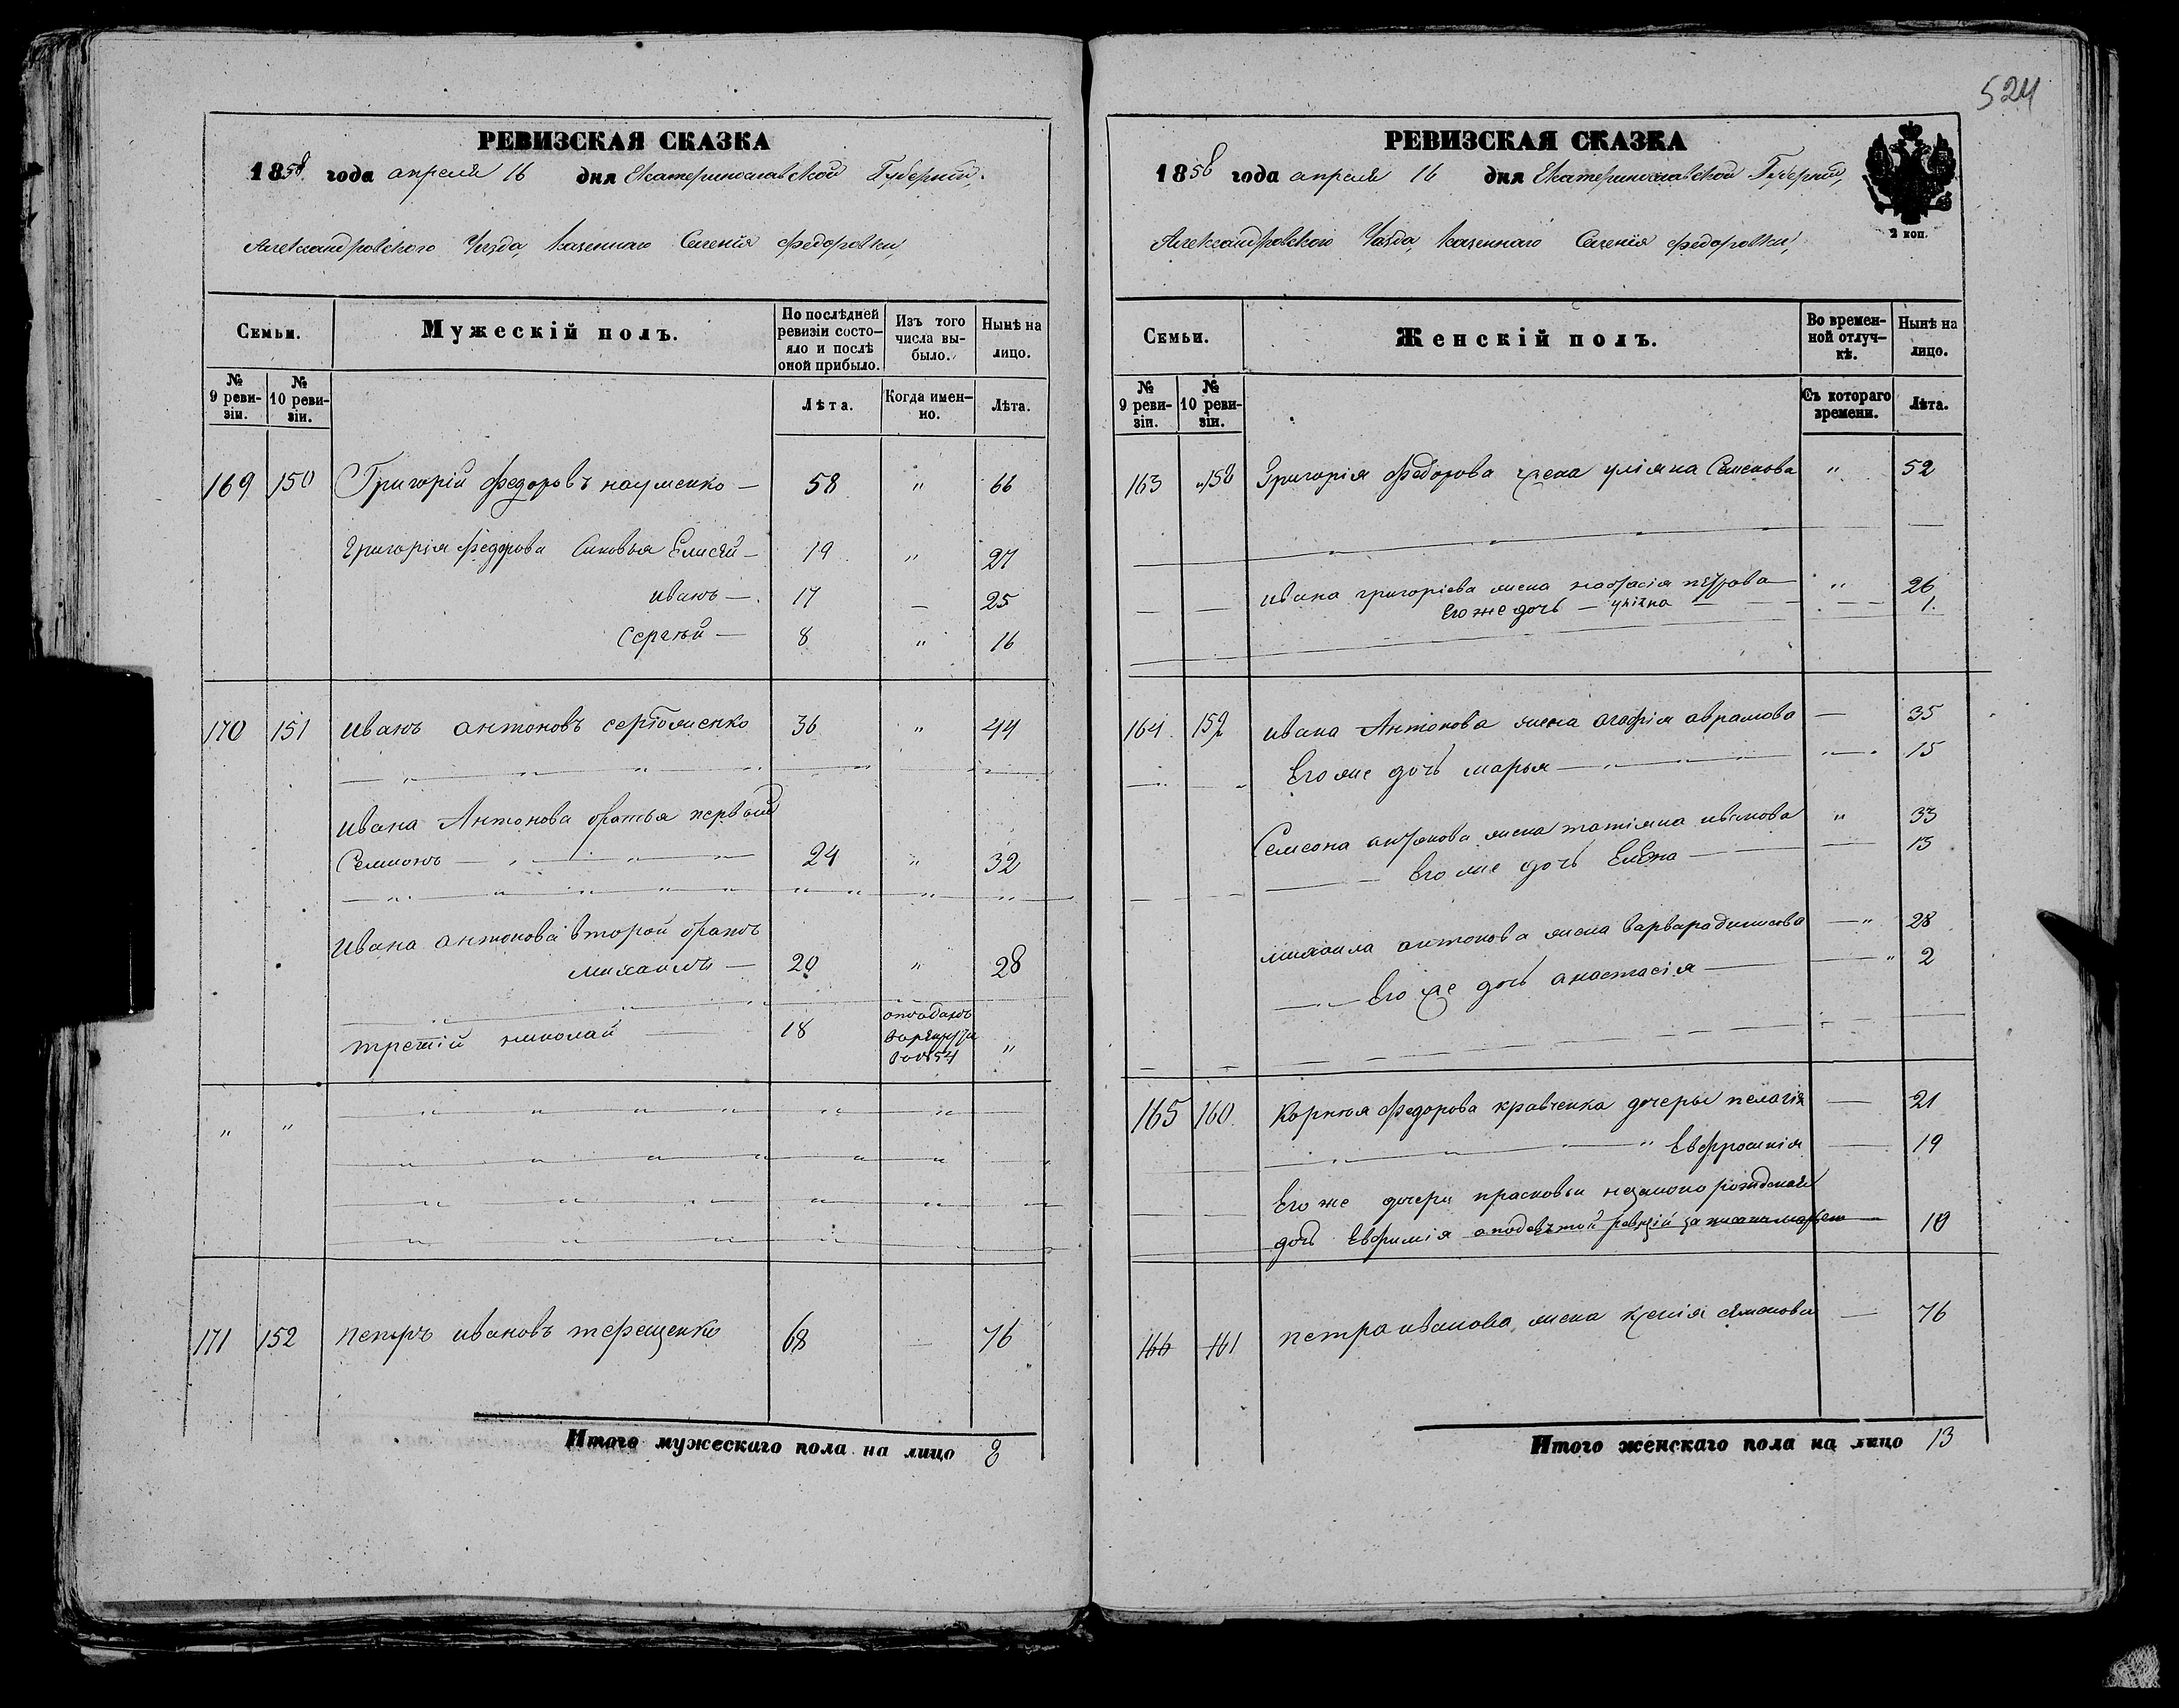 524
РЕВИЗСКАЯ СКАЗКА
1858 года апреля 16 дня Екатеринославской Губернии,
Александровского Уезда, казенного Селенія федоровки,
Семьи.
Мужескій полъ.
По послѣдней ревизіи состо-яло и послѣ оной прибыло.
Изъ того числа вы-было.
Нынѣ на лицо.
№ 9 реви-зіи.
№ 10 реви-зіи.
Лѣта.
Когда имен-но.
Лѣта.
169 150 Григорій федоровъ науменко — 58 " 66
Григорія федорова Сыновья Елисей — 19 " 27
иванъ — 17 — 25
сергѣй — 8 " 16
170 151 иванъ антоновъ 36 " 44
ивана Антонова братья первый
Семионъ — 24 " 32
ивана антонова второй братъ
михаилъ — 20 " 28
третій николай — 18 отдадан въ рекруты 1854 "
" "
171 152 петръ ивановъ терещенко 68 — 76
Итого мужескаго пола на лицо 8
РЕВИЗСКАЯ СКАЗКА
1858 года апреля 16 дня Екатеринославской Губернии,
Александровского Уезда, казенного Селенія федоровки,
2 коп.
Семьи.
Женскій полъ.
Во времен-ной отлуч-кѣ.
Нынѣ на лицо.
№ 9 реви-зіи.
№ 10 реви-зіи.
Съ котораго времени.
Лѣта.
163 158 Григорія федорова жена уліяна Семенова " 52
ивана григоріева жена настасія петрова " 26
его же дочь — уліяна — 1
164 159 ивана Антонова жена агафія аврамова — 35
Его же дочь марья — 15
Семсона антонова жена татіяна иванова " 33
его же дочь Елена — 13
михаила антонова жена варвара денисова — " 28
Его же дочь анастасія — " 2
165 160 корнѣя федорова кравченка дочеры пелагія — 21
" Евфросинія — 19
Его же дочери прасковьи незаконо рожденая
дочь Евфимія 10
166 161 петра иванова жена ксенія семенова — 76
Итого женскаго пола на лицо 13